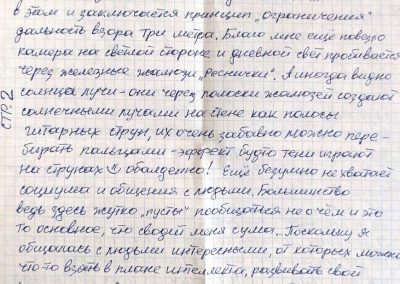 в этом и заключается принцип „ограничения"
дальность взора три метра. Благо мне ещё повезло
камера на светлой стороне и дневной свет пробивается
через железные жалюзи „реснички". А иногда видно
солнца лучи – они через полоски жалюзей создают
солнечными лучами на стене как полосы
гитарных струн, их очень забавно можно пере-
бирать пальцами – эффект будто тени играют
на струнах обалденно! Ещё безумно не хватает
социума и общения с людьми, Большинство
ведь здесь жутко „пусты" пообщаться не о чём и это
то основное, что сводит меня с ума... Поскольку я
общалась с людьми интересными, от которых можно
что-то взять в плане интеллекта, развивать свой
СТР. 2